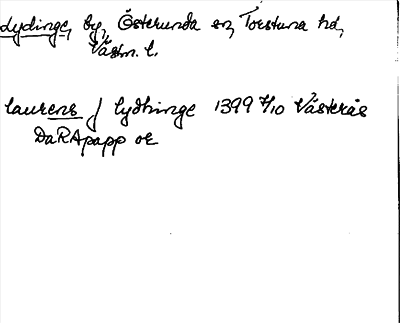 Lydinge, by, Österunda sn, Torstuna hd,
Västm. l.
laurens j lydhinge 1399 7/10 Västerås
DaRApapp or